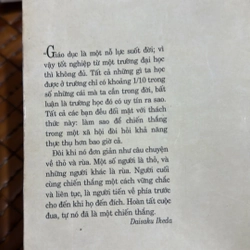 "Giáo dục là một nỗ lực suốt đời; vì
vậy tốt nghiệp từ một trường đại học
thì không đủ. Tất cả những gì ta học
được ở trường chỉ có khoảng 1/10 trong
số những cái mà ta cần trong đời, bất
luận là trường học đó có uy tín ra sao.
Tất cả các bạn đều đối mặt với thách
thức này: làm sao để chiến thắng
trong một xã hội đòi hỏi khả năng
thực thụ hơn bao giờ cả.
Đôi khi nó đơn giản như câu chuyện
về thỏ và rùa. Một số người là thỏ, và
những người khác là rùa. Người cuối
cùng chiến thắng một cách vững chắc
và liên tục, là người tiến về phía trước
cho đến khi họ đến đích. Hoàn tất cuộc
đua, tự nó đã là một chiến thắng.
Daisaku Ikeda